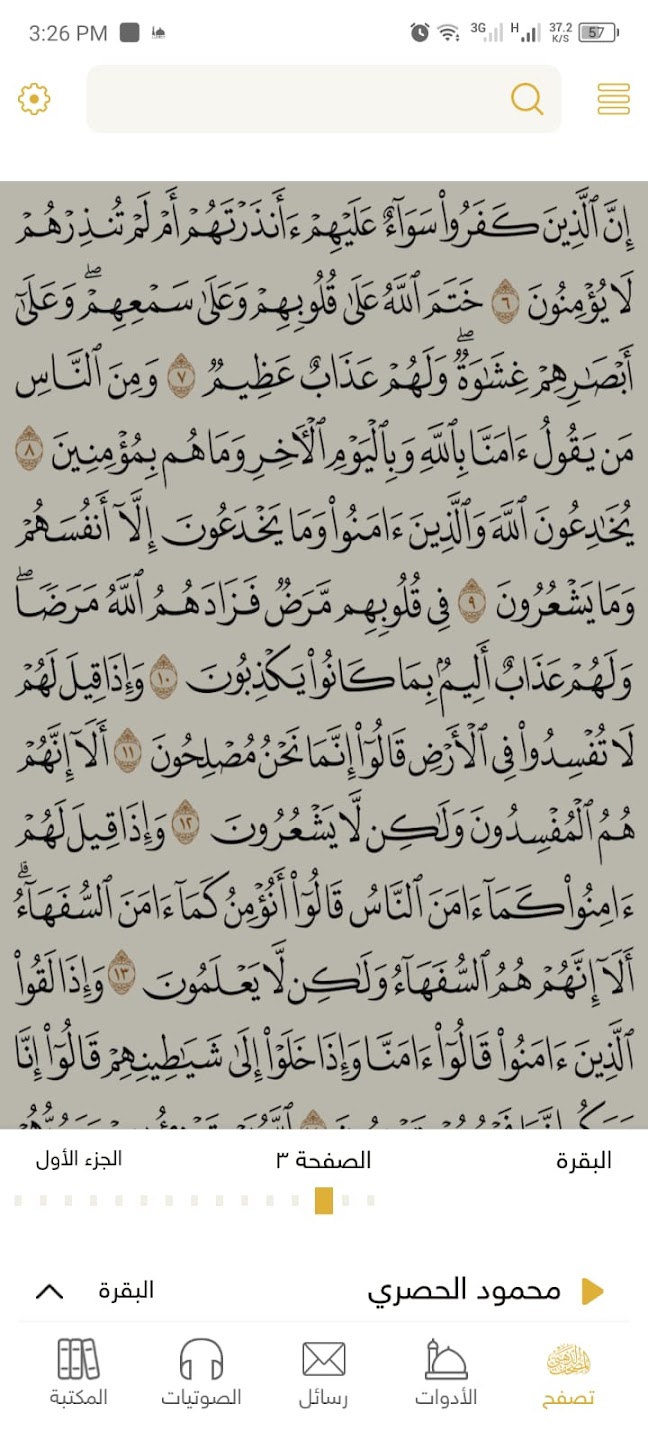 3:26 PM 3G H 37.2 K/S 57
إِنَّ ٱلَّذِينَ كَفَرُوا۟ سَوَآءٌ عَلَيْهِمْ ءَأَنذَرْتَهُمْ أَمْ لَمْ تُنذِرْهُمْ
لَا يُؤْمِنُونَ ٦ خَتَمَ ٱللَّهُ عَلَىٰ قُلُوبِهِمْ وَعَلَىٰ سَمْعِهِمْ ۖ وَعَلَىٰٓ
أَبْصَـٰرِهِمْ غِشَـٰوَةٌ ۖ وَلَهُمْ عَذَابٌ عَظِيمٌ ٧ وَمِنَ ٱلنَّاسِ
مَن يَقُولُ ءَامَنَّا بِٱللَّهِ وَبِٱلْيَوْمِ ٱلْـَٔاخِرِ وَمَا هُم بِمُؤْمِنِينَ ٨
يُخَـٰدِعُونَ ٱللَّهَ وَٱلَّذِينَ ءَامَنُوا۟ وَمَا يَخْدَعُونَ إِلَّآ أَنفُسَهُمْ
وَمَا يَشْعُرُونَ ٩ فِى قُلُوبِهِم مَّرَضٌ فَزَادَهُمُ ٱللَّهُ مَرَضًا ۖ
وَلَهُمْ عَذَابٌ أَلِيمٌۢ بِمَا كَانُوا۟ يَكْذِبُونَ ١٠ وَإِذَا قِيلَ لَهُمْ
لَا تُفْسِدُوا۟ فِى ٱلْأَرْضِ قَالُوٓا۟ إِنَّمَا نَحْنُ مُصْلِحُونَ ١١ أَلَآ إِنَّهُمْ
هُمُ ٱلْمُفْسِدُونَ وَلَـٰكِن لَّا يَشْعُرُونَ ١٢ وَإِذَا قِيلَ لَهُمْ
ءَامِنُوا۟ كَمَآ ءَامَنَ ٱلنَّاسُ قَالُوٓا۟ أَنُؤْمِنُ كَمَآ ءَامَنَ ٱلسُّفَهَآءُ ۗ
أَلَآ إِنَّهُمْ هُمُ ٱلسُّفَهَآءُ وَلَـٰكِن لَّا يَعْلَمُونَ ١٣ وَإِذَا لَقُوا۟
ٱلَّذِينَ ءَامَنُوا۟ قَالُوٓا۟ ءَامَنَّا وَإِذَا خَلَوْا۟ إِلَىٰ شَيَـٰطِينِهِمْ قَالُوٓا۟ إِنَّا
البقرة الصفحة ٣ الجزء الأول
محمود الحصري البقرة
تصفح الأدوات رسائل الصوتيات المكتبة